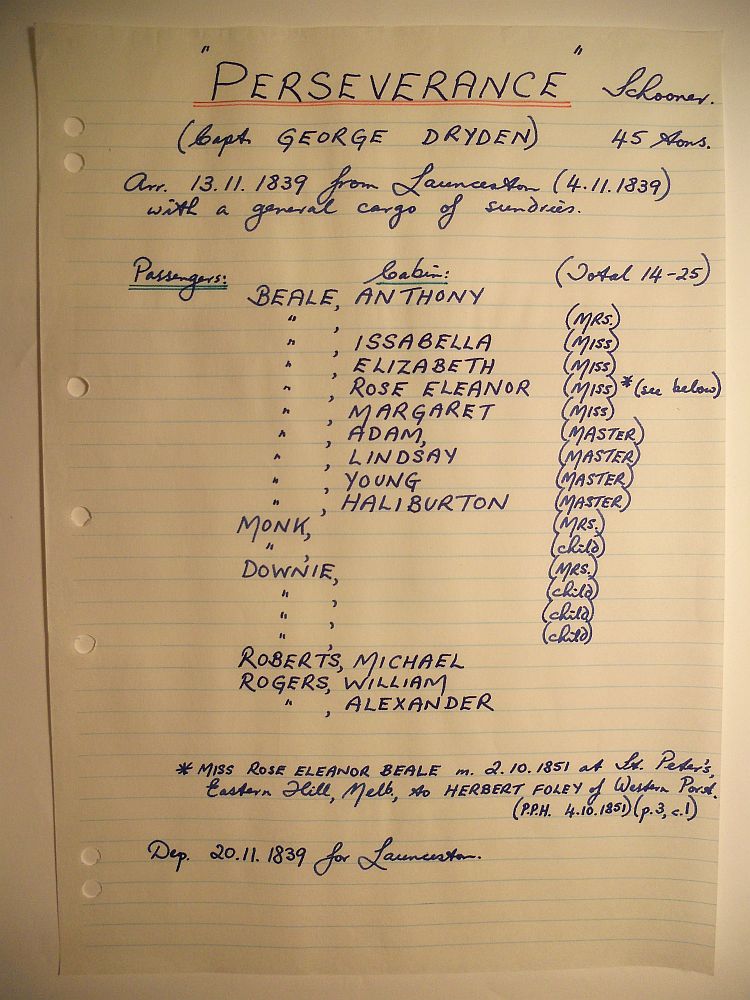 "PERSEVERANCE" Schooner.
(Capt. GEORGE DRYDEN) 45 tons.
Arr. 13.11.1839 from Launceston (4.11.1839)
with a general cargo of sundries.
Passengers: Cabin: (Total 14-25)
BEALE, ANTHONY
" , (MRS.)
" , ISSABELLA (MISS)
" , ELIZABETH (MISS)
" , ROSE ELEANOR (MISS)* (see below)
" , MARGARET (MISS)
" , ADAM, (MASTER)
" , LINDSAY (MASTER)
" , YOUNG (MASTER)
" , HALIBURTON (MASTER)
MONK, (MRS.)
" , (child)
DOWNIE, (MRS.)
" , (child)
" , (child)
" , (child)
ROBERTS, MICHAEL
ROGERS, WILLIAM
" , ALEXANDER
* MISS ROSE ELEANOR BEALE m. 2.10.1851 at St. Peter's,
Eastern Hill, Melb., to HERBERT FOLEY of Western Port.
(P.P.H. 4.10.1851) (p.3, c.1)
Dep. 20.11.1839 for Launceston.